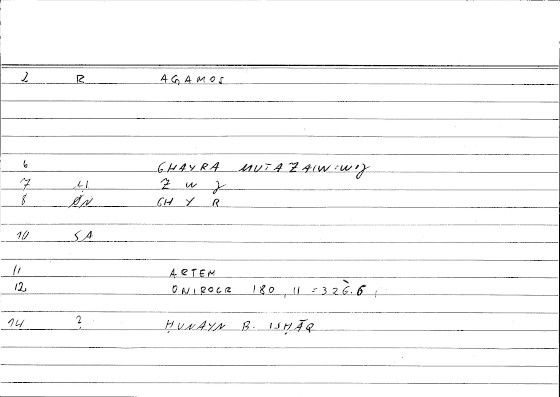 2 R AGAMOS
6 GHAYRA MUTAZAIWIWIJ
7 MI Z W J
8 ØN GH Y R
10 SA
11 ARTEM
12 ONIROCR 180, 11 = 326.6
14 ? ḤUNAYN B. ISḤĀQ